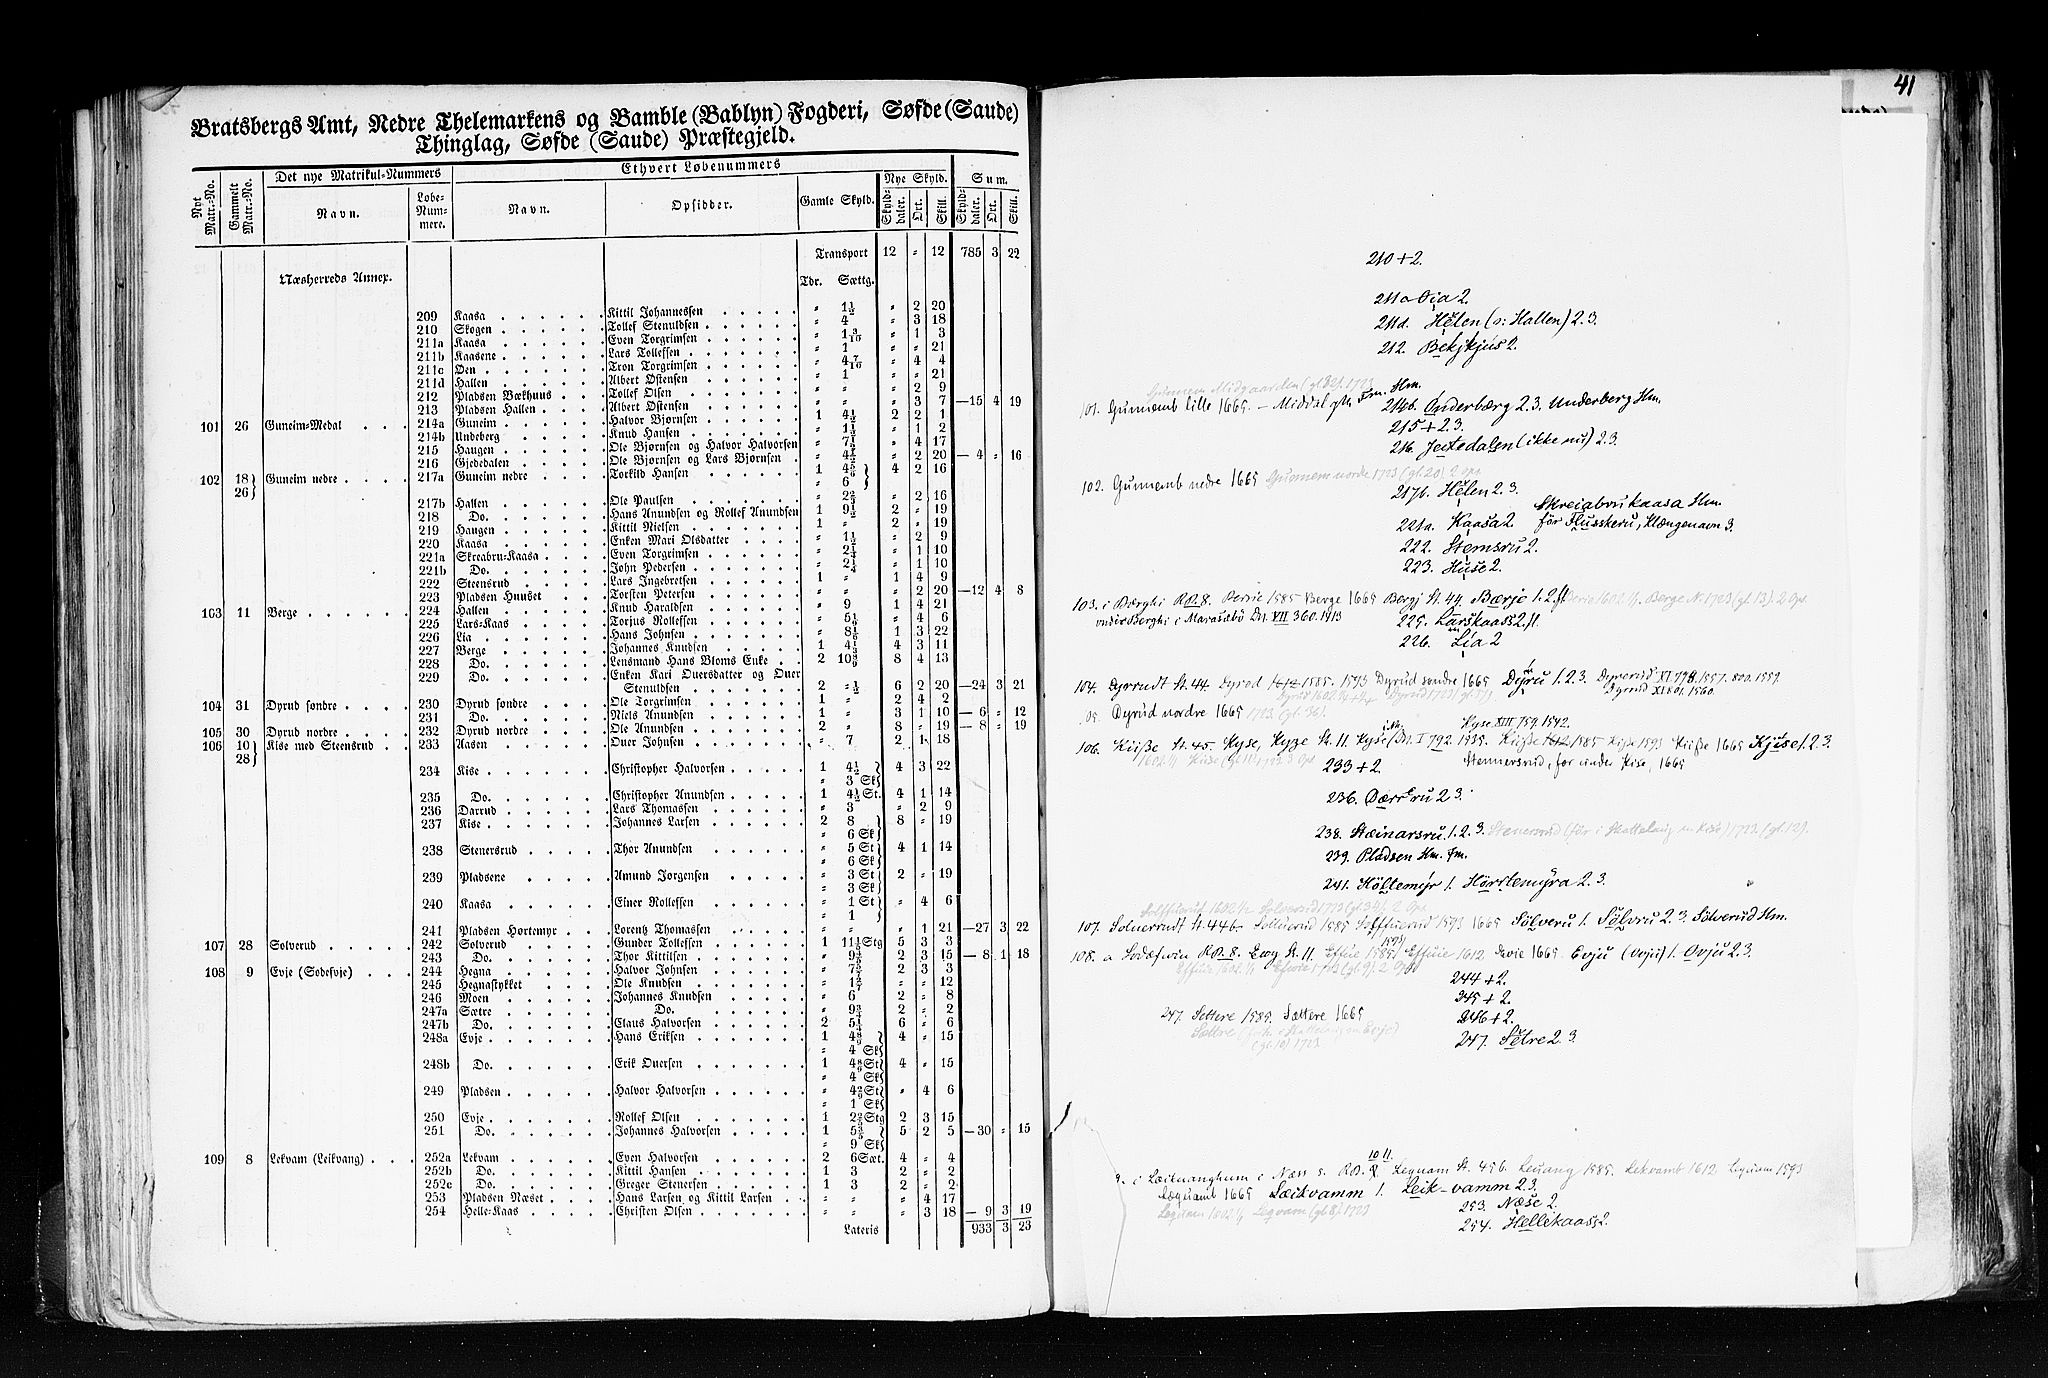 Bratsbergs Amt, Nedre Thelemarkens og Bamble (Bablyn) Fogderi, Søfde (Saude)
Thinglag, Søfde (Saude) Præstegjeld.
Nyt Matr.-No. Gammelt Matr.-No. Det nye Matrikul-Nummers Ethvert Løbenummers Sum.
Navn. Løbe-Nummere. Navn. Opsidder. Gamle Skyld. Nye Skyld. Skylddaler. Ort. Skill. Skylddaler. Ort. Skill.
Transport 12 " 12 785 3 22
Næsherreds Annex. Tdr. Sættg.
209 Kaasa Kittil Johannessen " 1½ " 2 20
210 Skogen Tollef Stenuldsen " 4 " 3 18
211a Kaasa Even Torgrimsen " 1 3/10 " 1 3
211b Kaasene Lars Tollefsen " 1 " " 21
211c Øen Tron Torgrimsen " 4 7/10 " 4 4
211d Hallen Albert Østensen " 1 " " 21
212 Pladsen Bækhuus Tollef Olsen " " " 2 9
213 Pladsen Hallen Albert Østensen " " " 3 7 —15 4 19
101 26 Guneim-Medal 214a Guneim Halvor Bjørnsen 1 4½ 2 2 1
214b Undeberg Knud Hansen " 1½ " 1 2
215 Haugen Ole Bjørnsen og Halvor Halvorsen " 7½ " 4 17
216 Gjededalen Ole Bjørnsen og Lars Bjørnsen " 4½ " 2 20 — 4 " 16
102 18 Guneim nedre 217a Guneim nedre Torkild Hansen 1 4 5/6 } 4 2 16
26} " 6 }
217b Hallen Ole Paulsen " 2⅔ " 2 16
218 Do. Hans Anundsen og Rollef Anundsen 1 9½ 2 " 19
219 Haugen Kittil Nielsen 1 " 2 " 19
220 Kaasa Enken Mari Olsdatter " 1½ " 2 9
221a Skreabru-Kaasa Even Torgrimsen " 2¼ " 1 10
221b Do. John Pedersen " 2¼ " 1 10
222 Steensrud Lars Ingebretsen 1 " 1 4 9
223 Pladsen Huuset Torsten Petersen " " " 2 20 —12 4 8
103 11 Berge 224 Hallen Knud Haraldsen " 9 1 4 21
225 Lars-Kaas Torjus Rollefsen " 5⅓ " 4 6
226 Lia Hans Johnsen " 8⅙ 1 3 22
227 Berge Johannes Knudsen 1 4⅓ 4 3 11
228 Do. Lensmand Hans Bloms Enke 2 10 8/9 8 4 13
229 Do. Enken Kari Ouersdatter og Ouer
Stenuldsen 2 "½ 6 2 20 —24 3 21
104 31 Dyrud søndre 230 Dyrud søndre Ole Torgrimsen 1 " 2 4 2
231 Do. Niels Anundsen 1 " 3 1 10 — 6 " 12
105 30 Dyrud nordre 232 Dyrud nordre Ole Anundsen 2 " 8 " 19 — 8 " 19
106 10 Kise med Steensrud 233 Aasen Ouer Johnsen " 7 2 1 18
28}
234 Kise Christopher Halvorsen 1 4½ } 4 3 22
" 3 Sk}
235 Do. Christopher Anundsen 1 4½ St. 4 1 14
236 Darrud Lars Thomassen " 3 " 2 9
237 Kise Johannes Larsen 2 8 } 8 " 19
" 6 Sk}
238 Stenersrud Thor Anundsen " 5 St 4 1 14
" 6 Sk}
239 Pladsene Amund Jorgensen " 3 St 2 " 19
" 3 Sk}
240 Kaasa Einer Rollefsen " 1 St " 4 6
" 1 }
241 Pladsen Hortemyr Lorentz Thomassen " " " 1 21 —27 3 22
107 28 Solverud 242 Solverud Gunder Tollefsen 1 11⅕ Stg 5 3 3
243 Do. Thor Kittilsen " 9⅗ 2 3 15 — 8 1 18
108 9 Evje (Sodefvje) 244 Hegna Halvor Johnsen " 7½ 2 3 3
245 Hegnastykket Ole Knudsen " 1 2/7 " " 12
246 Moen Johannes Knudsen " 6 2 " 8
247a Sætre Do. " 9¾ 2 " 2
247b Do. Claus Halvorsen 2 5¼ 6 " 6
248a Evje Hans Eriksen 1 4 8/9 } 4 " 15
" 4 Sk}
248b Do. Erik Ouersen 1 4 8/9 St 4 " 15
" 4 Sk}
249 Pladsen Halvor Halvorsen " 4 2/9 St " 4 6
" 1 Sk}
250 Evje Rollef Olsen 1 2⅔ Stg 2 3 15
251 Do. Johannes Halvorsen 1 5⅗ } 5 2 5 —30 " 15
" 9 Sk}
109 8 Lekvam (Leikvang) 252a Lekvam Even Halvorsen 2 6 Sæt. 4 " 4
252b Do. Kittil Hansen 1 3 2 " 2
252c Do. Greger Stenersen 1 3 2 " 2
253 Pladsen Næset Hans Larsen og Kittil Larsen " " " 4 17
254 Helle-Kaas Christen Olsen " " " 3 18 — 9 3 19
Lateris 933 3 23
41
210 + 2.
211a Øia 2.
211d. Hëlen (ɔ: Hallen) 2. 3.
212. Bekjkjus 2.
Gunnem Midgaarden (gl. 32). 1723
101. Gunnemb Lille 1665. — Middal gM. Fm. Hm.
214b. Onderbærg 2. 3. Underberg Hm.
215 + 2. 3.
216. Jeitedalen (ikke nu) 2. 3.
102. Gunnemb nedre 1665 Gunnem nordre 1723 (gl. 20) 2 Ops
217b. Hëlen 2. 3.
Skreiabrukaasa Hm.
221a. Kaasa 2 før Flusskeru, Klængenavn 3.
222. Stemsru 2.
223. Huse 2.
103. i Bærghi R.B. 8. 1585 Berge 1665 Bergj St. 44. Bærje 1. 2. Berge N. 1723 (gl. 13). 2 Ops
under Berghi i Marasæbö Dn. VII 360. 1413
225. Larskaass 2.
226. Lia 2
104. Dyrrudt St. 44. Dyrod 1585. 1593 Dyrud søndre 1665 Dÿru 1. 2. 3. Dyrerud XI 778. 1557. 800. 1559.
Dyrud XI 801. 1560.
05. Dyrud nordre 1665 1723. (gl. 36).
Kyse XIII 759. 1542.
106. Kiisse St. 45. Kyse, Kyze St. 11. Kyse Dn. I 792. 1535. Kiisse 1585 Kise 1593 Kiisse 1665 Kjise 1. 2. 3.
233 + 2. Stennersrud, før under Kise, 1665
236. Dærrëru 2 3.
238. Stæinarsru 1. 2. 3. Stenersrud (før i Skattelaug m Kise) 1723. (gl. 12).
239. Pladsen Hm. Fm.
241. Høltemyr 1. Hørstemyra 2. 3.
107. Soluerrudt St. 44b Solluerud 1585 Solffuerud 1593 1665 Sölveru 1. Sölvru 2. 3. Solverud Hm.
108. a Sodæfwin R.B. 8. Ewy St. 11 Effuie 1585 1593 Effuie 1612 Evie 1665. Evju (Ovju) 1. Ovju 2. 3.
244 + 2.
245 + 2.
246 + 2.
247. Settere 1585. Sættere 1665
247. Setre 2. 3.
(gl. 10) 1723
9. i Læikuanghum i Næss s. R.B. 10 11. Lequam St. 45b. Leuang 1585. Lekvamt 1612 Lequam 1593
Lequamt 1665 Læikvamm 1. Leik-vamm 2. 3.
Lequam 1602 ¼ Leqvam (gl. 8). 1723
253. Næse 2.
254. Hellekaass 2.